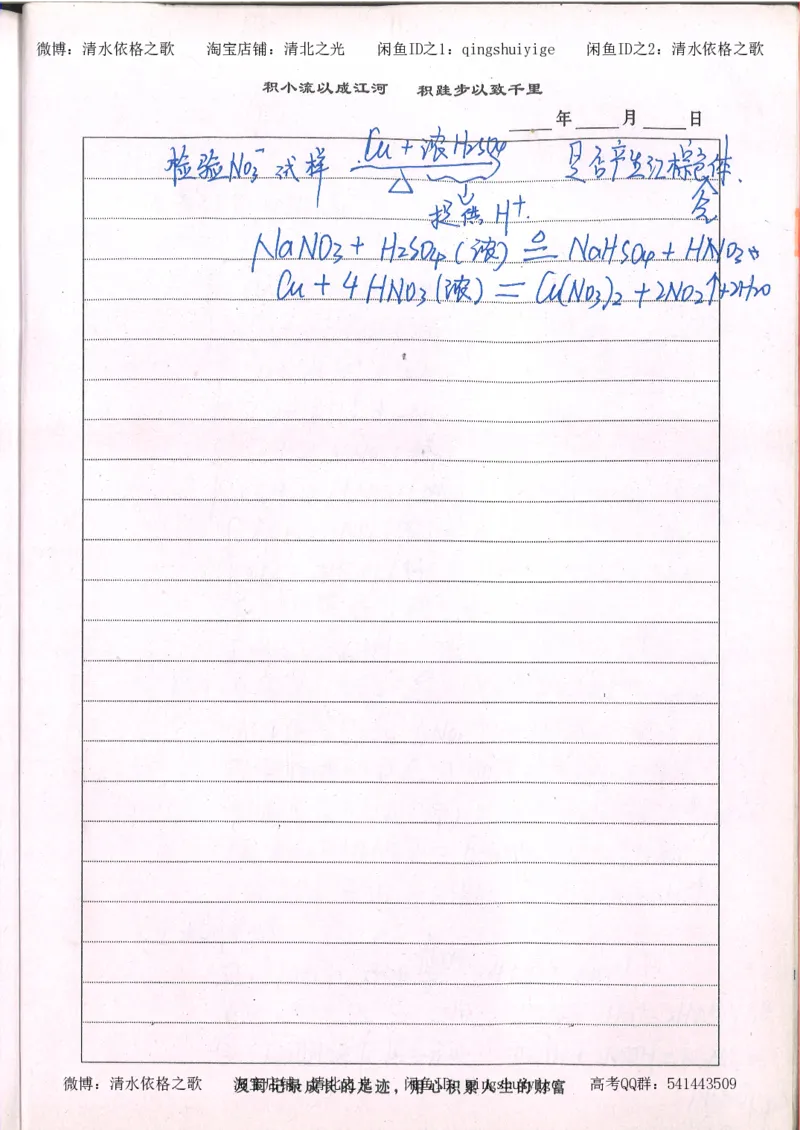 微博：清水依格之歌 淘宝店铺：清北之光 闲鱼ID之1：qingshuiyige 闲鱼ID之2：清水依格之歌
积小流以成江河 积跬步以致千里
年 月 日
检验NO₃⁻ 试样 Cu + 浓H₂SO₄ 是否产生红棕色体.
△ 气
提供H⁺.
NaNO₃ + H₂SO₄(浓) ≜ NaHSO₄ + HNO₃
Cu + 4HNO₃(浓) = Cu(NO₃)₂ + 2NO₂↑+2H₂O
微博：清水依格之歌 淘宝店铺：清北之光 闲鱼ID：qingshuiyige 高考QQ群：541443509
及时记录成长的足迹，用心积累人生的财富